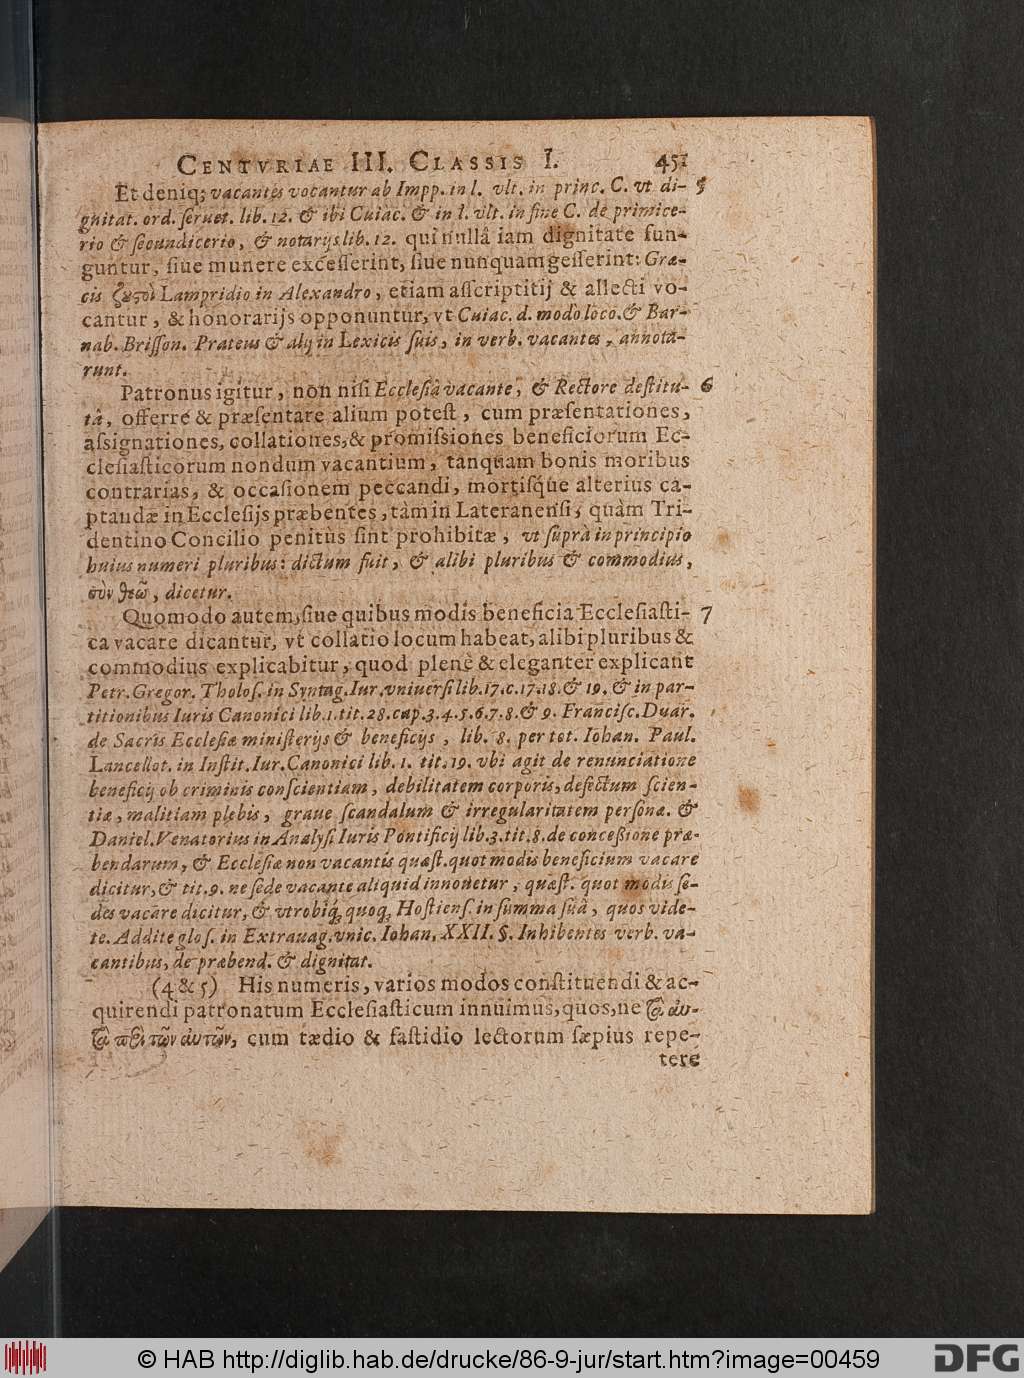 CENTVRIAE III. CLASSIS I. 451
Et deniq; vacantes vocantur ab Impp. in l. vlt. in princ. C. vt di- 5
gnitat. ord. seruet. lib. 12. & ibi Cuiac. & in l. vlt. in fine C. de primice-
rio & secundicerio, & notarijs lib. 12. qui nullâ iam dignitate fun-
guntur, siue munere excesserint, siue nunquam gesserint: Græ-
cis Lampridio in Alexandro, etiam asscriptitij & allecti vo-
cantur, & honorarijs opponuntur, vt Cuiac. d. modò loco. & Bar-
nab. Brisson. Prateus & alij in Lexicis suis, in verb. vacantes, annota-
runt.
Patronus igitur, non nisi Ecclesiâ vacante, & Rectore destitu- 6
tâ, offerre & præsentare alium potest, cum præsentationes,
assignationes, collationes, & promissiones beneficiorum Ec-
clesiasticorum nondum vacantium, tanquam bonis moribus
contrarias, & occasionem peccandi, mortisq́ue alterius ca-
ptandæ in Ecclesijs præbentes, tàm in Lateranensi, quàm Tri-
dentino Concilio penitùs sint prohibitæ, vt suprà in principio
huius numeri pluribus: dictum fuit, & alibi pluribus & commodius,
σὺν θεῷ, dicetur.
Quomodo autem, siue quibus modis beneficia Ecclesiasti- 7
ca vacare dicantur, vt collatio locum habeat, alibi pluribus &
commodius explicabitur, quod plenè & eleganter explicant
Petr. Gregor. Tholos. in Syntag. Iur. vniuersi lib. 17. c. 17. 18. & 19. & in par-
titionibus Iuris Canonici lib. 1. tit. 28. cap. 3. 4. 5. 6. 7. 8. & 9. Francisc. Duar.
de Sacris Ecclesiæ ministerijs & beneficijs, lib. 8. per tot. Iohan. Paul.
Lancellot. in Instit. Iur. Canonici lib. 1. tit. 19. vbi agit de renunciatione
beneficij ob criminis conscientiam, debilitatem corporis, defectum scien-
tiæ, malitiam plebis, graue scandalum & irregularitatem personæ. &
Daniel. Venatorius in Analysi Iuris Pontificij lib. 3. tit. 8. de concessione præ-
bendarum, & Ecclesiæ non vacantis quæst. quot modis beneficium vacare
dicitur, & tit. 9. ne sede vacante aliquid innouetur, quæst. quot modis se-
des vacare dicitur, & vtrobiq́; quoq; Hostiens. in summa suâ, quos vide-
te. Addite glos. in Extrauag. vnic. Iohan. XXII. §. Inhibentes verb. va-
cantibus, de præbend. & dignitat.
(4 & 5) His numeris, varios modos constituendi & ac-
quirendi patronatum Ecclesiasticum innuimus, quos, ne τὰ αὐ-
τὰ περὶ τῶν αὐτῶν, cum tædio & fastidio lectorum sæpius repe-
tere
© HAB http://diglib.hab.de/drucke/86-9-jur/start.htm?image=00459
DFG